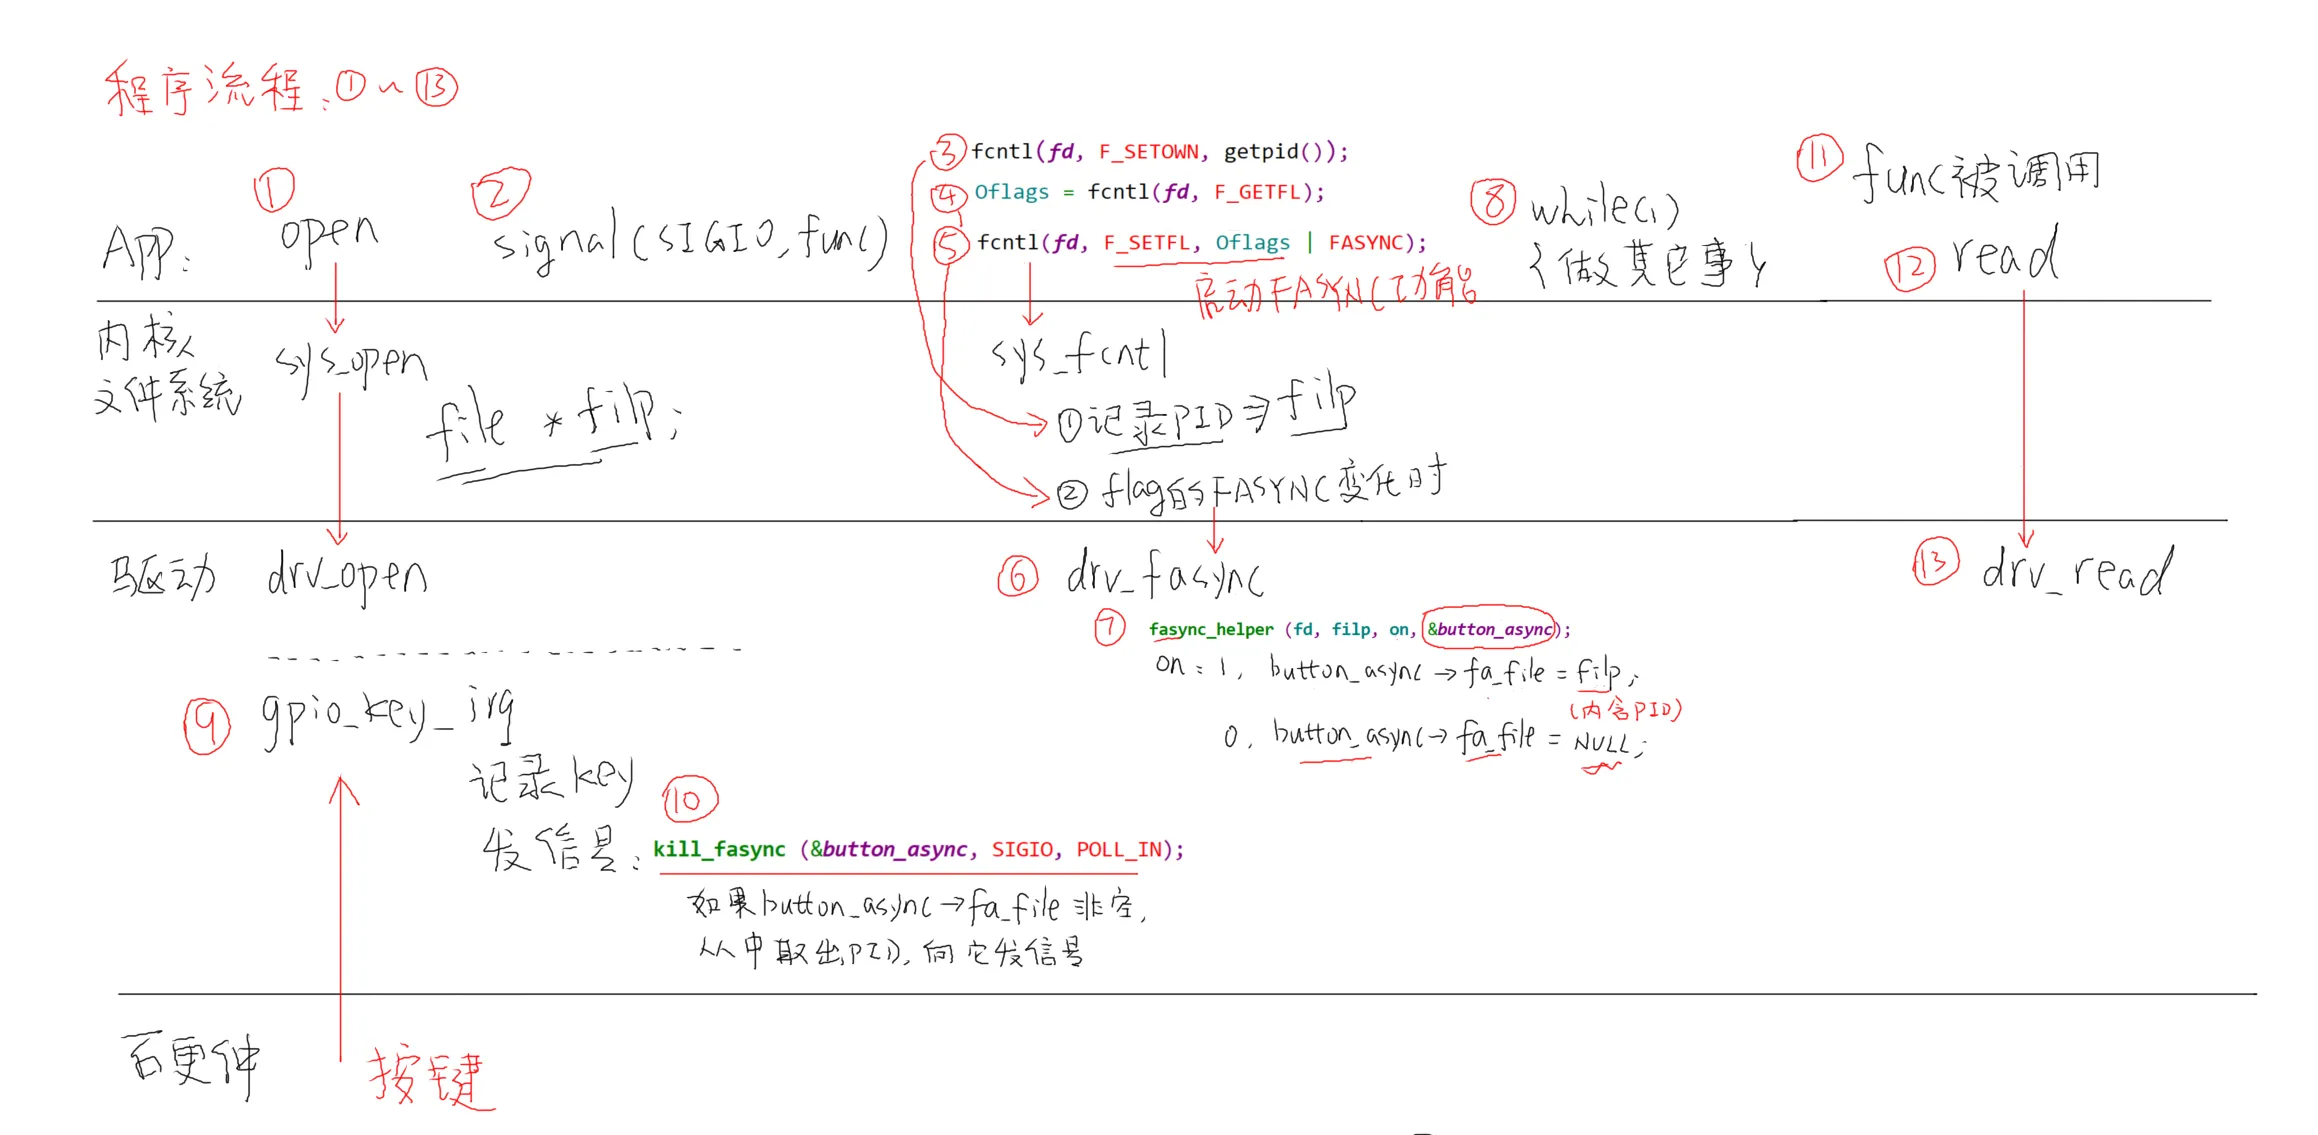 程序流程:①~⑬
③ fcntl(fd, F_SETOWN, getpid());
④ Oflags = fcntl(fd, F_GETFL);
⑤ fcntl(fd, F_SETFL, Oflags | FASYNC);
启动FASYNC功能
App:
① open
② signal(SIGIO, func)
⑧ while(1)
{做其它事}
⑪ func被调用
⑫ read
内核
文件系统
sys_open
file * filp;
sys_fcntl
①记录PID⇒filp
② flag的FASYNC变化时
驱动
drv_open
⑥ drv_fasync
⑬ drv_read
⑦ fasync_helper (fd, filp, on, &button_async);
on: 1, button_async→fa_file = filp;
(内含PID)
0, button_async→fa_file = NULL;
⑨ gpio_key_irq
记录key
⑩
发信号: kill_fasync (&button_async, SIGIO, POLL_IN);
如果button_async→fa_file非空,
从中取出PID,向它发信号
硬件
按键